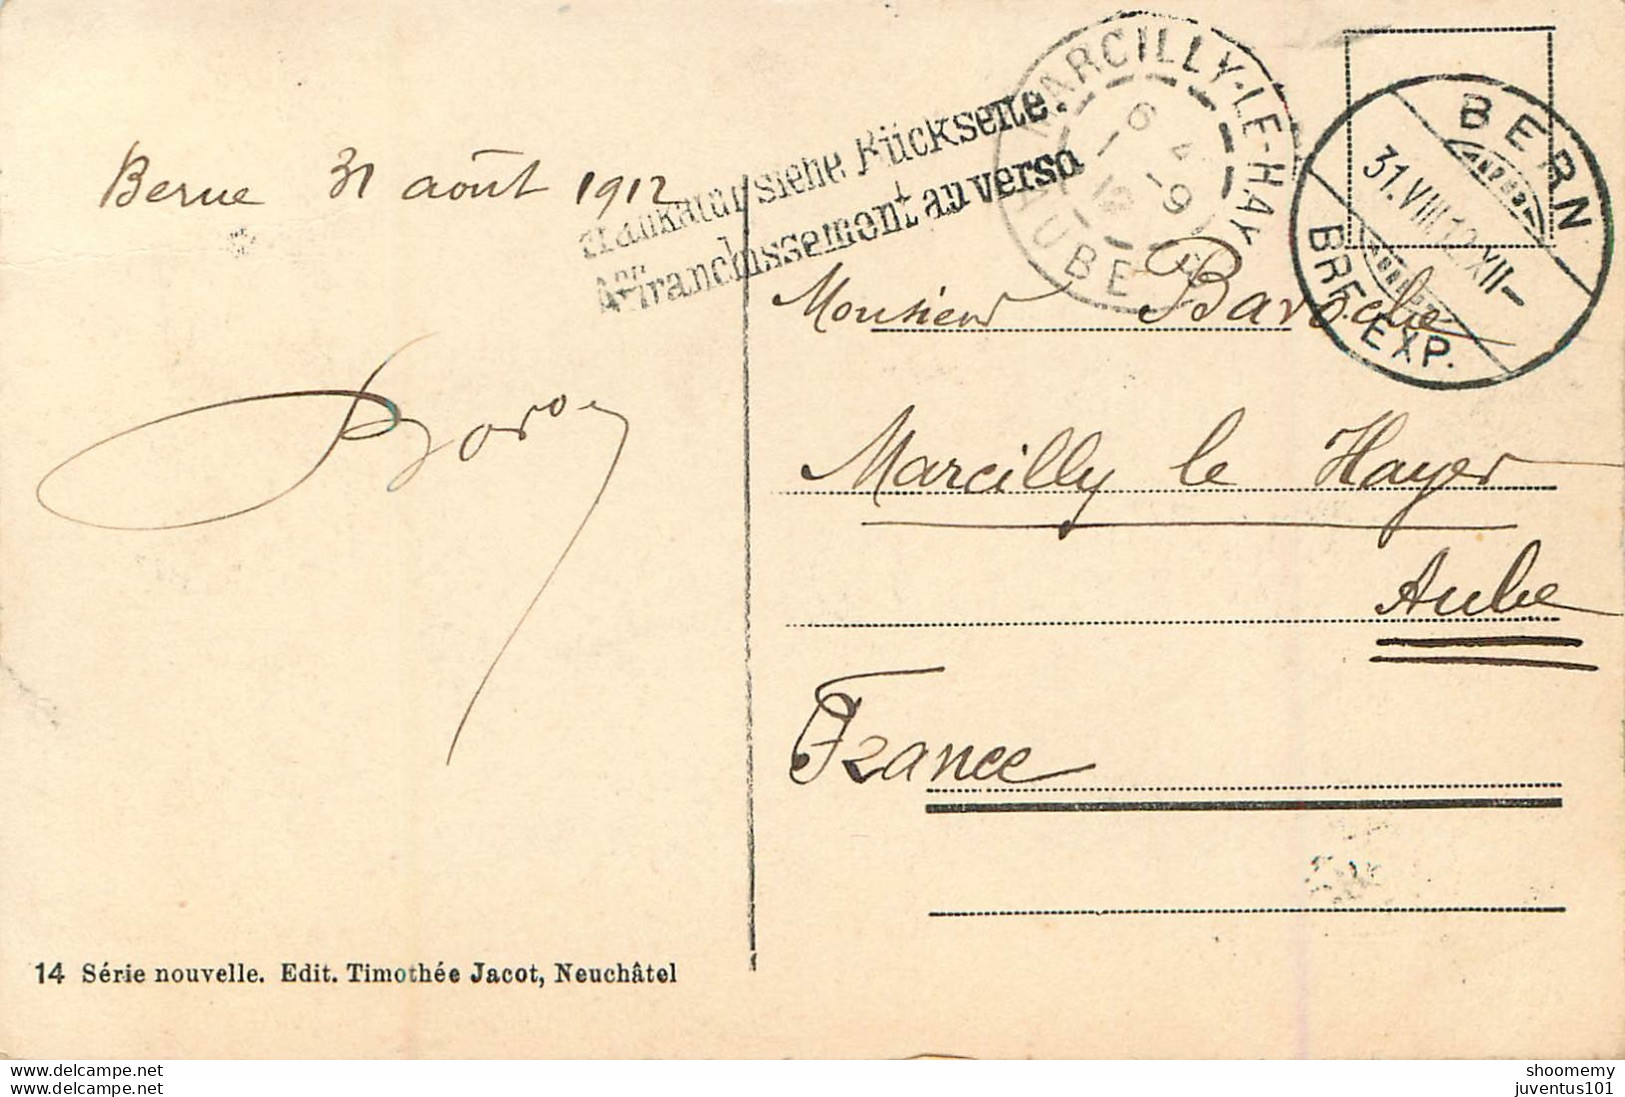 Berne 31 août 1912
Frankatur siehe Rückseite.
Affranchissement au verso
MARCILLY-LE-HAYER
6 4
1 -9
12
AUBE
BERN
31.VIII.12.XII-
BRF. EXP.
Monsieur Baroche
Marcilly le Hayer
Aube
France
14 Série nouvelle. Edit. Timothée Jacot, Neuchâtel
shoomemy
juventus101